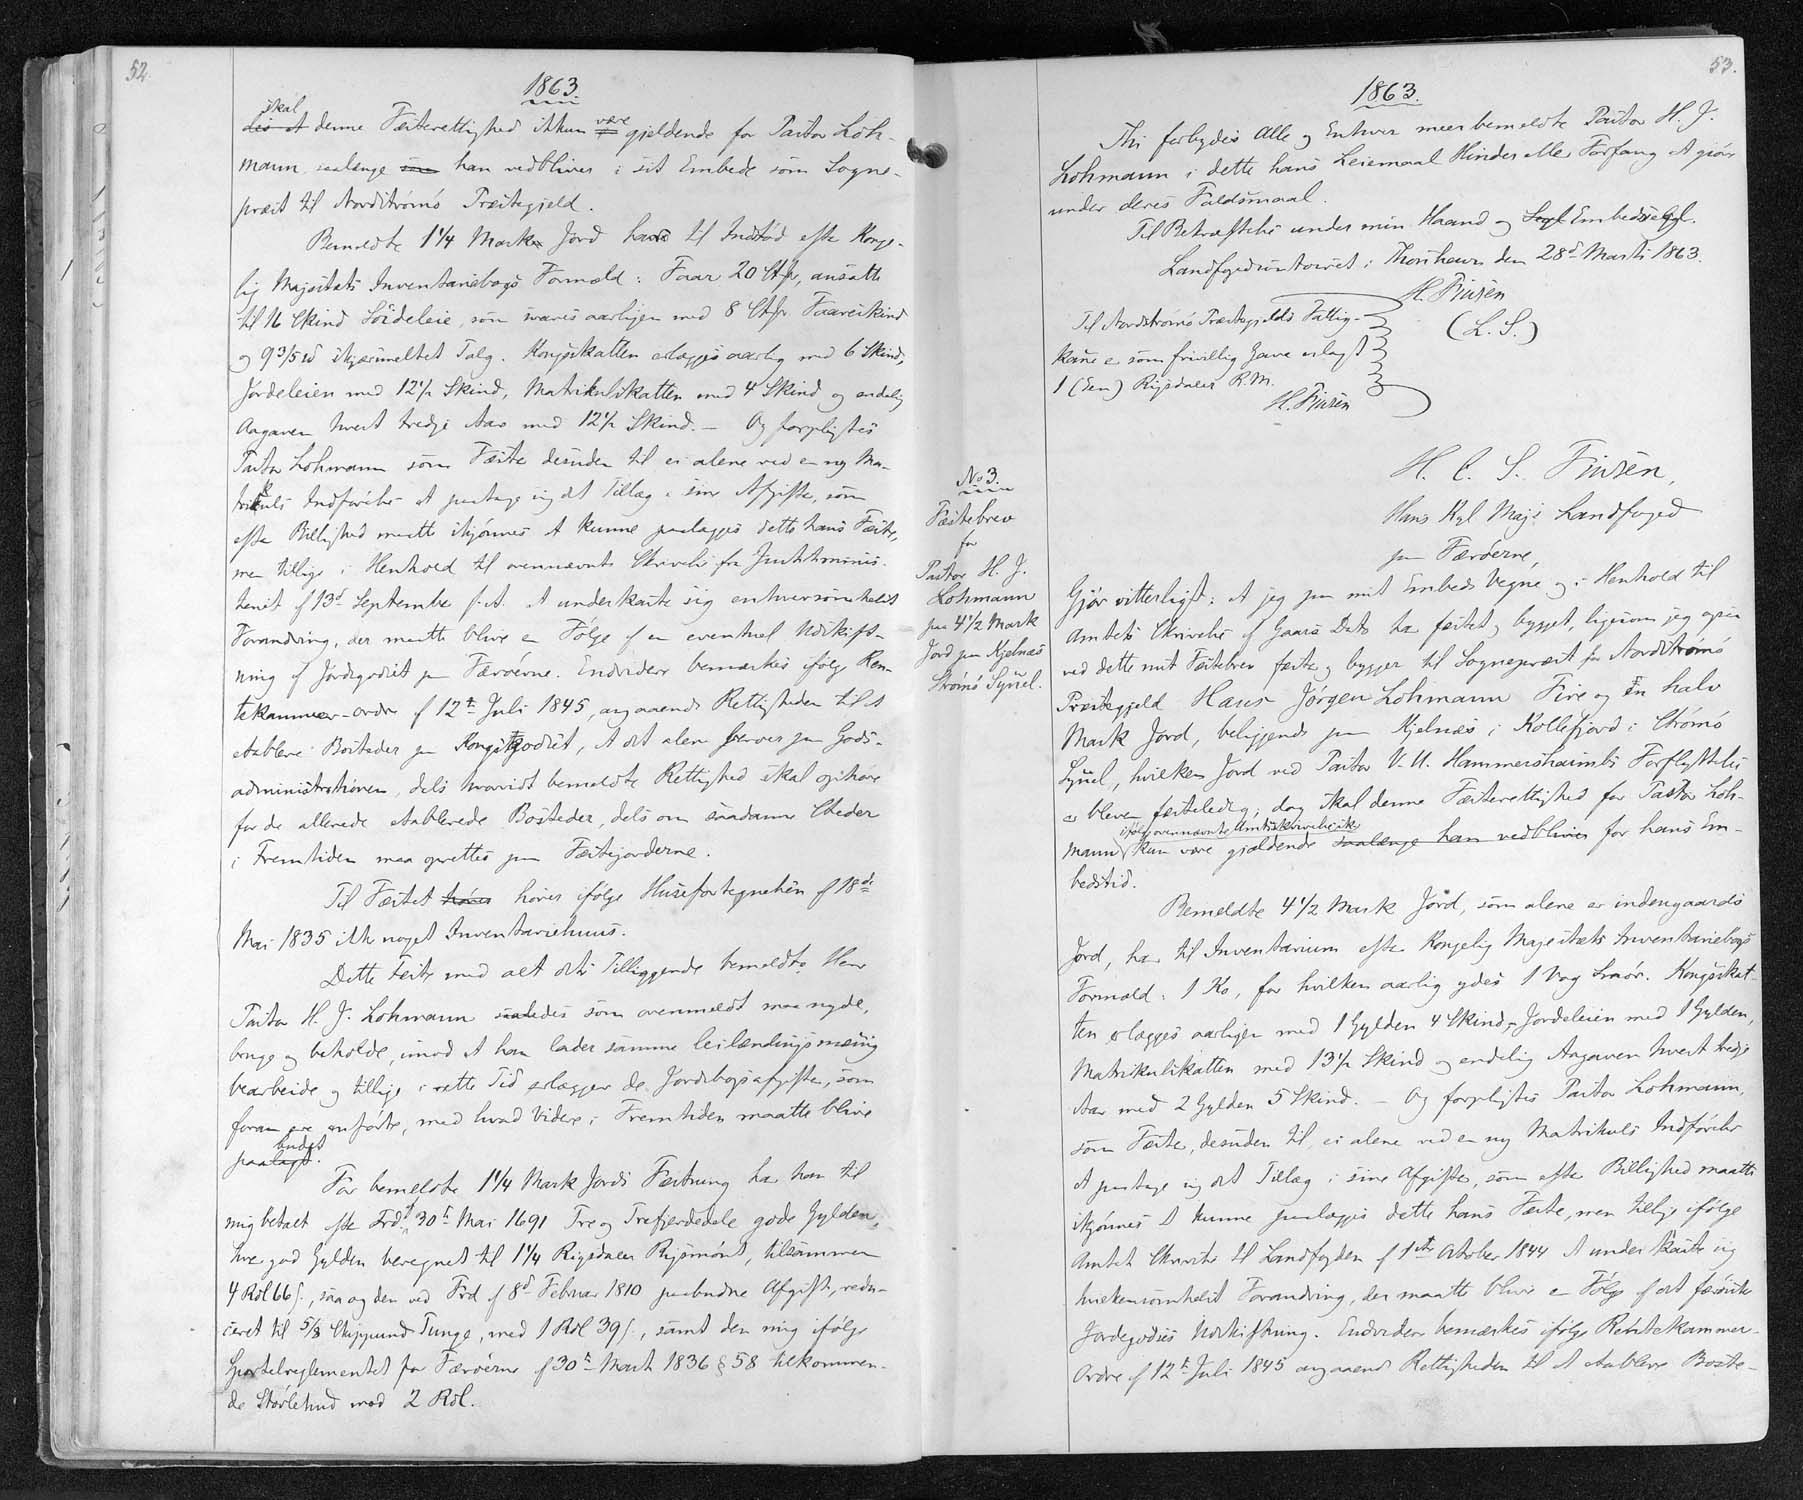 52.
1863.
skal
denne Fæsterettighed ikkun være gjeldende for Pastor Loh-
mann saalænge han vedbliver i sit Embede som Sogne-
præst til Nordstrømø Præstegjeld.
Bemeldte 1 1/4 Mark Jord har til Indstød efter Konge-
lig Majestæts Inventariebogs Formeld: Faar 20 Stkr, ansatte
til 16 Skind Sôideleie, som svares aarligen med 8 Stkr Faareskind
og 9 3/5 td skjærsmeltet Talg. Kongsskatten erlægges aarlig med 6 Skind,
Jordeleien med 12 1/2 Skind, Matrikulskatten med 4 Skind og endelig
Aagaven hvert tredje Aar med 12 1/2 Skind. – Og forpligtes
Pastor Lohmann som Fæster desuden til ei alene ved en ny Ma-
trikuls Indførelse at paatage sig det Tillæg i sine Afgifter, som
efter Billighed maatte skjønnes at kunne paalægges dette hans Fæste,
men tillige i Henhold til ovennævnte Skrivelse fra Justitsminis-
teriet af 13d September f. A. at underkaste sig enhversomhelst
Forandring, der maatte blive en Følge af en eventuel Udskift-
ning af Jordegodset paa Færøerne. Endvidere bemærkes ifølge Ren-
tekammer-ordre af 12te Juli 1845, angaaende Rettigheden til at
etablere Bosteder paa Kongsgodset, at det alene beroer paa Gods-
administrationen, dels hvorvidt bemeldte Rettighed skal ophøre
for de allerede etablerede Bosteder, dels om saadanne Steder
i Fremtiden maa oprettes paa Fæstejorderne.
Til Fæstet hører ifølge Husefortegnelsen af 18de
Mai 1835 ikke noget Inventariehuus.
Dette Fæste med alt dets Tilliggende bemeldte Herr
Pastor H. J. Lohmann saaledes som ovenmeldt maa nyde,
bruge og beholde, imod at han lader samme leilændingsmæssig
bearbeide og tillige i rette Tid erlægger de Jordebogsafgifter, som
foran ere anførte, med hvad videre i Fremtiden maatte blive
paabudet.
For bemeldte 1 1/4 Mark Jords Fæstning har han til
mig betalt efter Frd. af 30te Mai 1691 Tre og Trefjerdedele gode Gylden,
hver god Gylden beregnet til 1 1/4 Rigsdaler Rigsmønt, tilsammen
4 Rdl 66 s., saa og den ved Frd af 8d Februar 1810 paabudne Afgift, redu-
ceret til 5/8 Skippund Tunge, med 1 Rdl 39 s., samt den mig ifølge
Sportelreglementet for Færøerne af 30te Marts 1836 § 58 tilkommen-
de Størlehud med 2 Rdl.
53.
1863.
Thi forbydes Alle og Enhver meerbemeldte Pastor H. J.
Lohmann i dette hans Leiemaal Hinder eller Forfang at gjøre
under deres Faldsmaal.
Til Bekræftelse under min Haand og Embedssegl.
Landfogedcontoiret i Thorshavn den 28d Marts 1863.
H. Finsen
(L. S.)
Til Nordstrømø Præstegjelds Fattig-
kasse er som frivillig Gave erlagt
1 (Een) Rigsdaler R.M.
H. Finsen
No 3.
Fæstebrev
for
Pastor H. J.
Lohmann
paa 4 1/2 Mark
Jord paa Kjelnæs
Strømø Syssel.
H. C. S. Finsen,
Hans Kgl Majs Landfoged
paa Færøerne,
Gjør vitterligt: At jeg paa mit Embeds Vegne og i Henhold til
Amtets Skrivelse af Gaars Dato har fæstet og bygget, ligesom jeg ogsaa
ved dette mit Fæstebrev fæster og bygger til Sognepræst for Nordstrømø
Præstegjeld Hans Jørgen Lohmann Fire og En halv
Mark Jord, beliggende paa Kjelnæs i Kollefjord i Strømø
Syssel, hvilken Jord ved Pastor V. U. Hammershaimbs Forflyttelse
er bleven fæsteledig; dog skal denne Fæsterettighed for Pastor Loh-
ifølge ovennævnte Amtsskrivelse ik
mann kun være gjældende saalænge han vedbliver for hans Em-
bedstid.
Bemeldte 4 1/2 Mark Jord, som alene er indengaards
Jord, har til Inventarium efter Kongelig Majestæts Inventariebogs
Formeld: 1 Ko, for hvilken aarlig ydes 1 Vog Smør. Kongsskat-
ten erlægges aarligen med 1 Gylden 4 Skind, Jordeleien med 1 Gylden,
Matrikulskatten med 13 1/2 Skind og endelig Aagaven hvert tredje
Aar med 2 Gylden 5 Skind. – Og forpligtes Pastor Lohmann,
som Fæster, desuden til ei alene ved en ny Matrikuls Indførelse
at paatage sig det Tillæg i sine Afgifter, som efter Billighed maatte
skjønnes at kunne paalægges dette hans Fæste, men tillige ifølge
Amtets Skrivelse til Landfogden af 1ste October 1844 at underkaste sig
hvilkensomhelst Forandring, der maatte blive en Følge af det færøiske
Jordegodses Udskiftning. Endvidere bemærkes ifølge Rentekammer-
Ordre af 12te Juli 1845 angaaende Rettigheden til at etablere Boste-